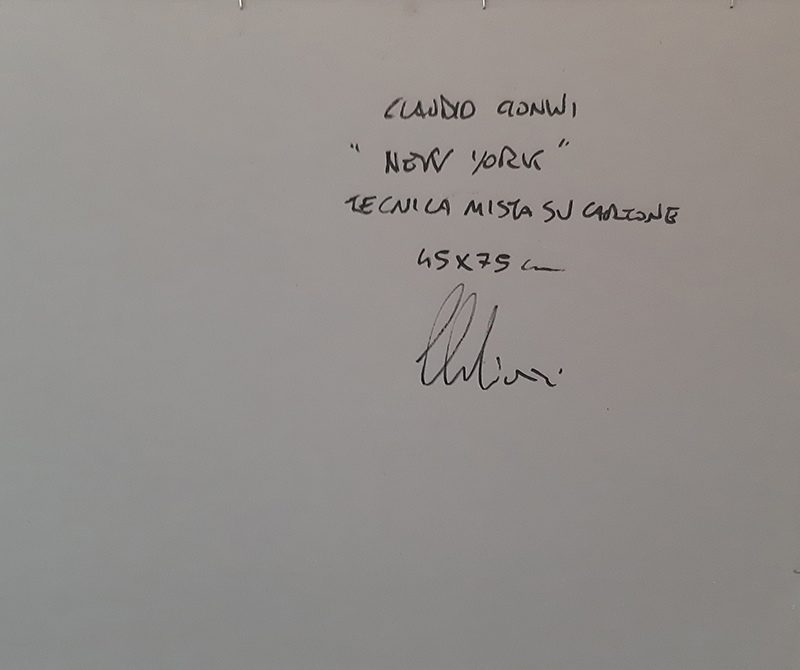 CLAUDIO
" NEW YORK "
TECNICA MISTA SU CARTONE
45X75 cm